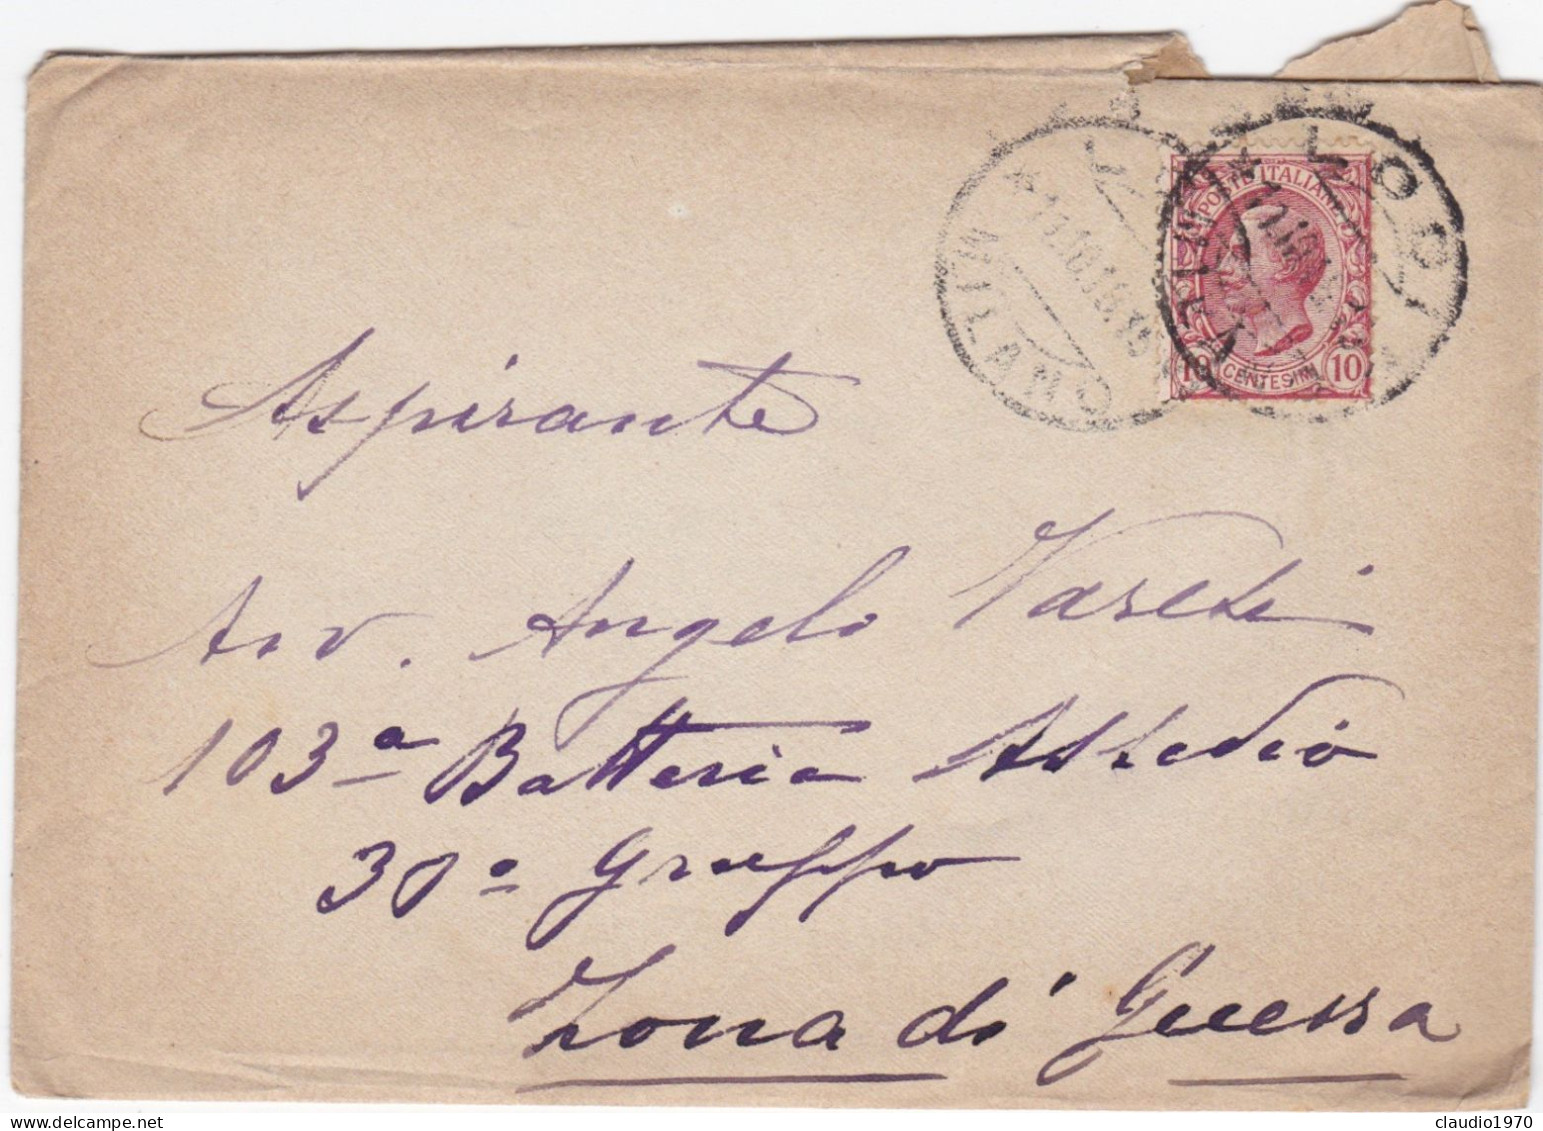 LODI
MILANO
POSTE ITALIANE
10 CENTESIMI 10
Aspirante
Avv. Angelo Varesi
103ª Batteria Assedio
30º Gruppo
Zona di Guerra
claudio1970